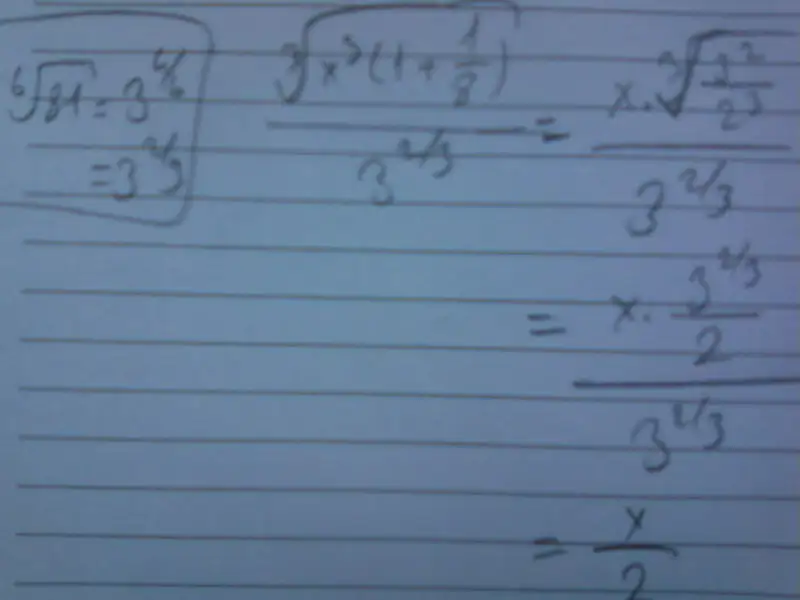 ⁶√81 = 3^(4/6)
= 3^(2/3)
∛(x³(1 + 1/8)) / 3^(2/3) = x · ∛(3²/2³) / 3^(2/3)
= x · (3^(2/3)/2) / 3^(2/3)
= x/2